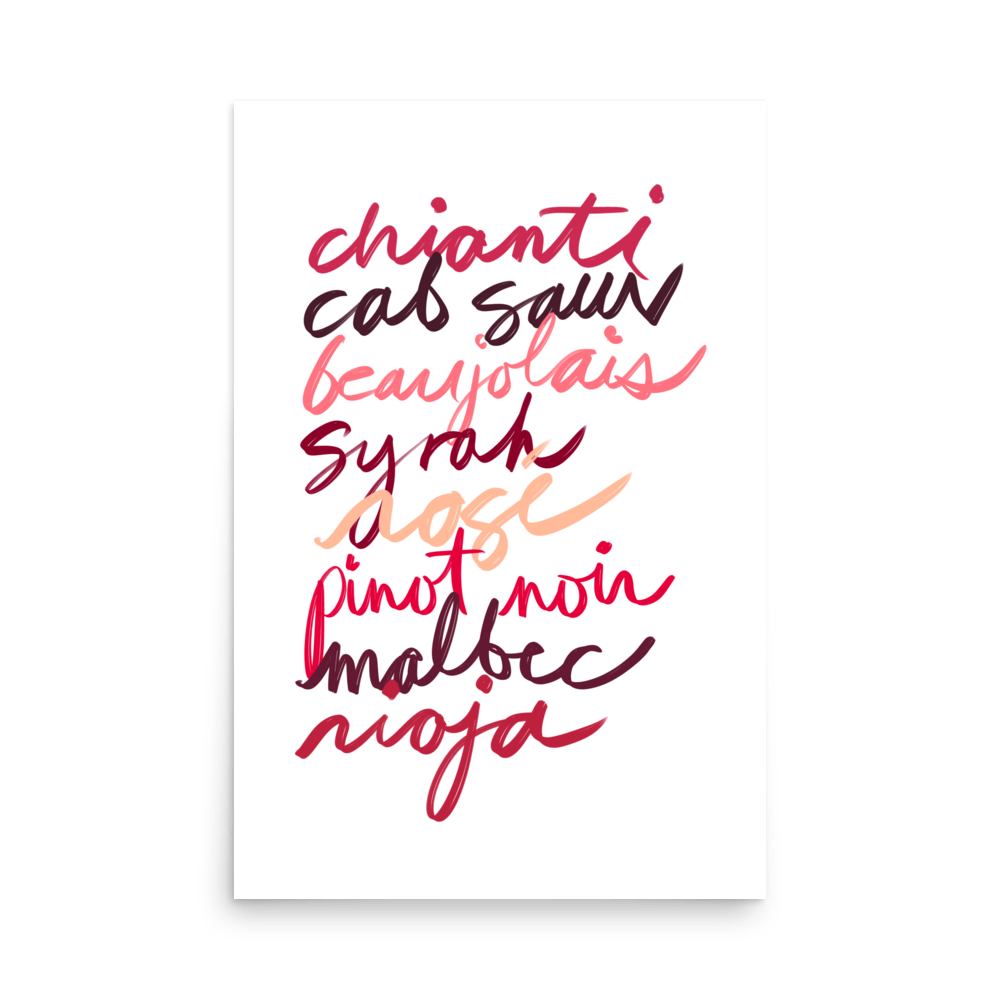 chianti
cab sauv
beaujolais
syrah
rosé
pinot noir
malbec
rioja